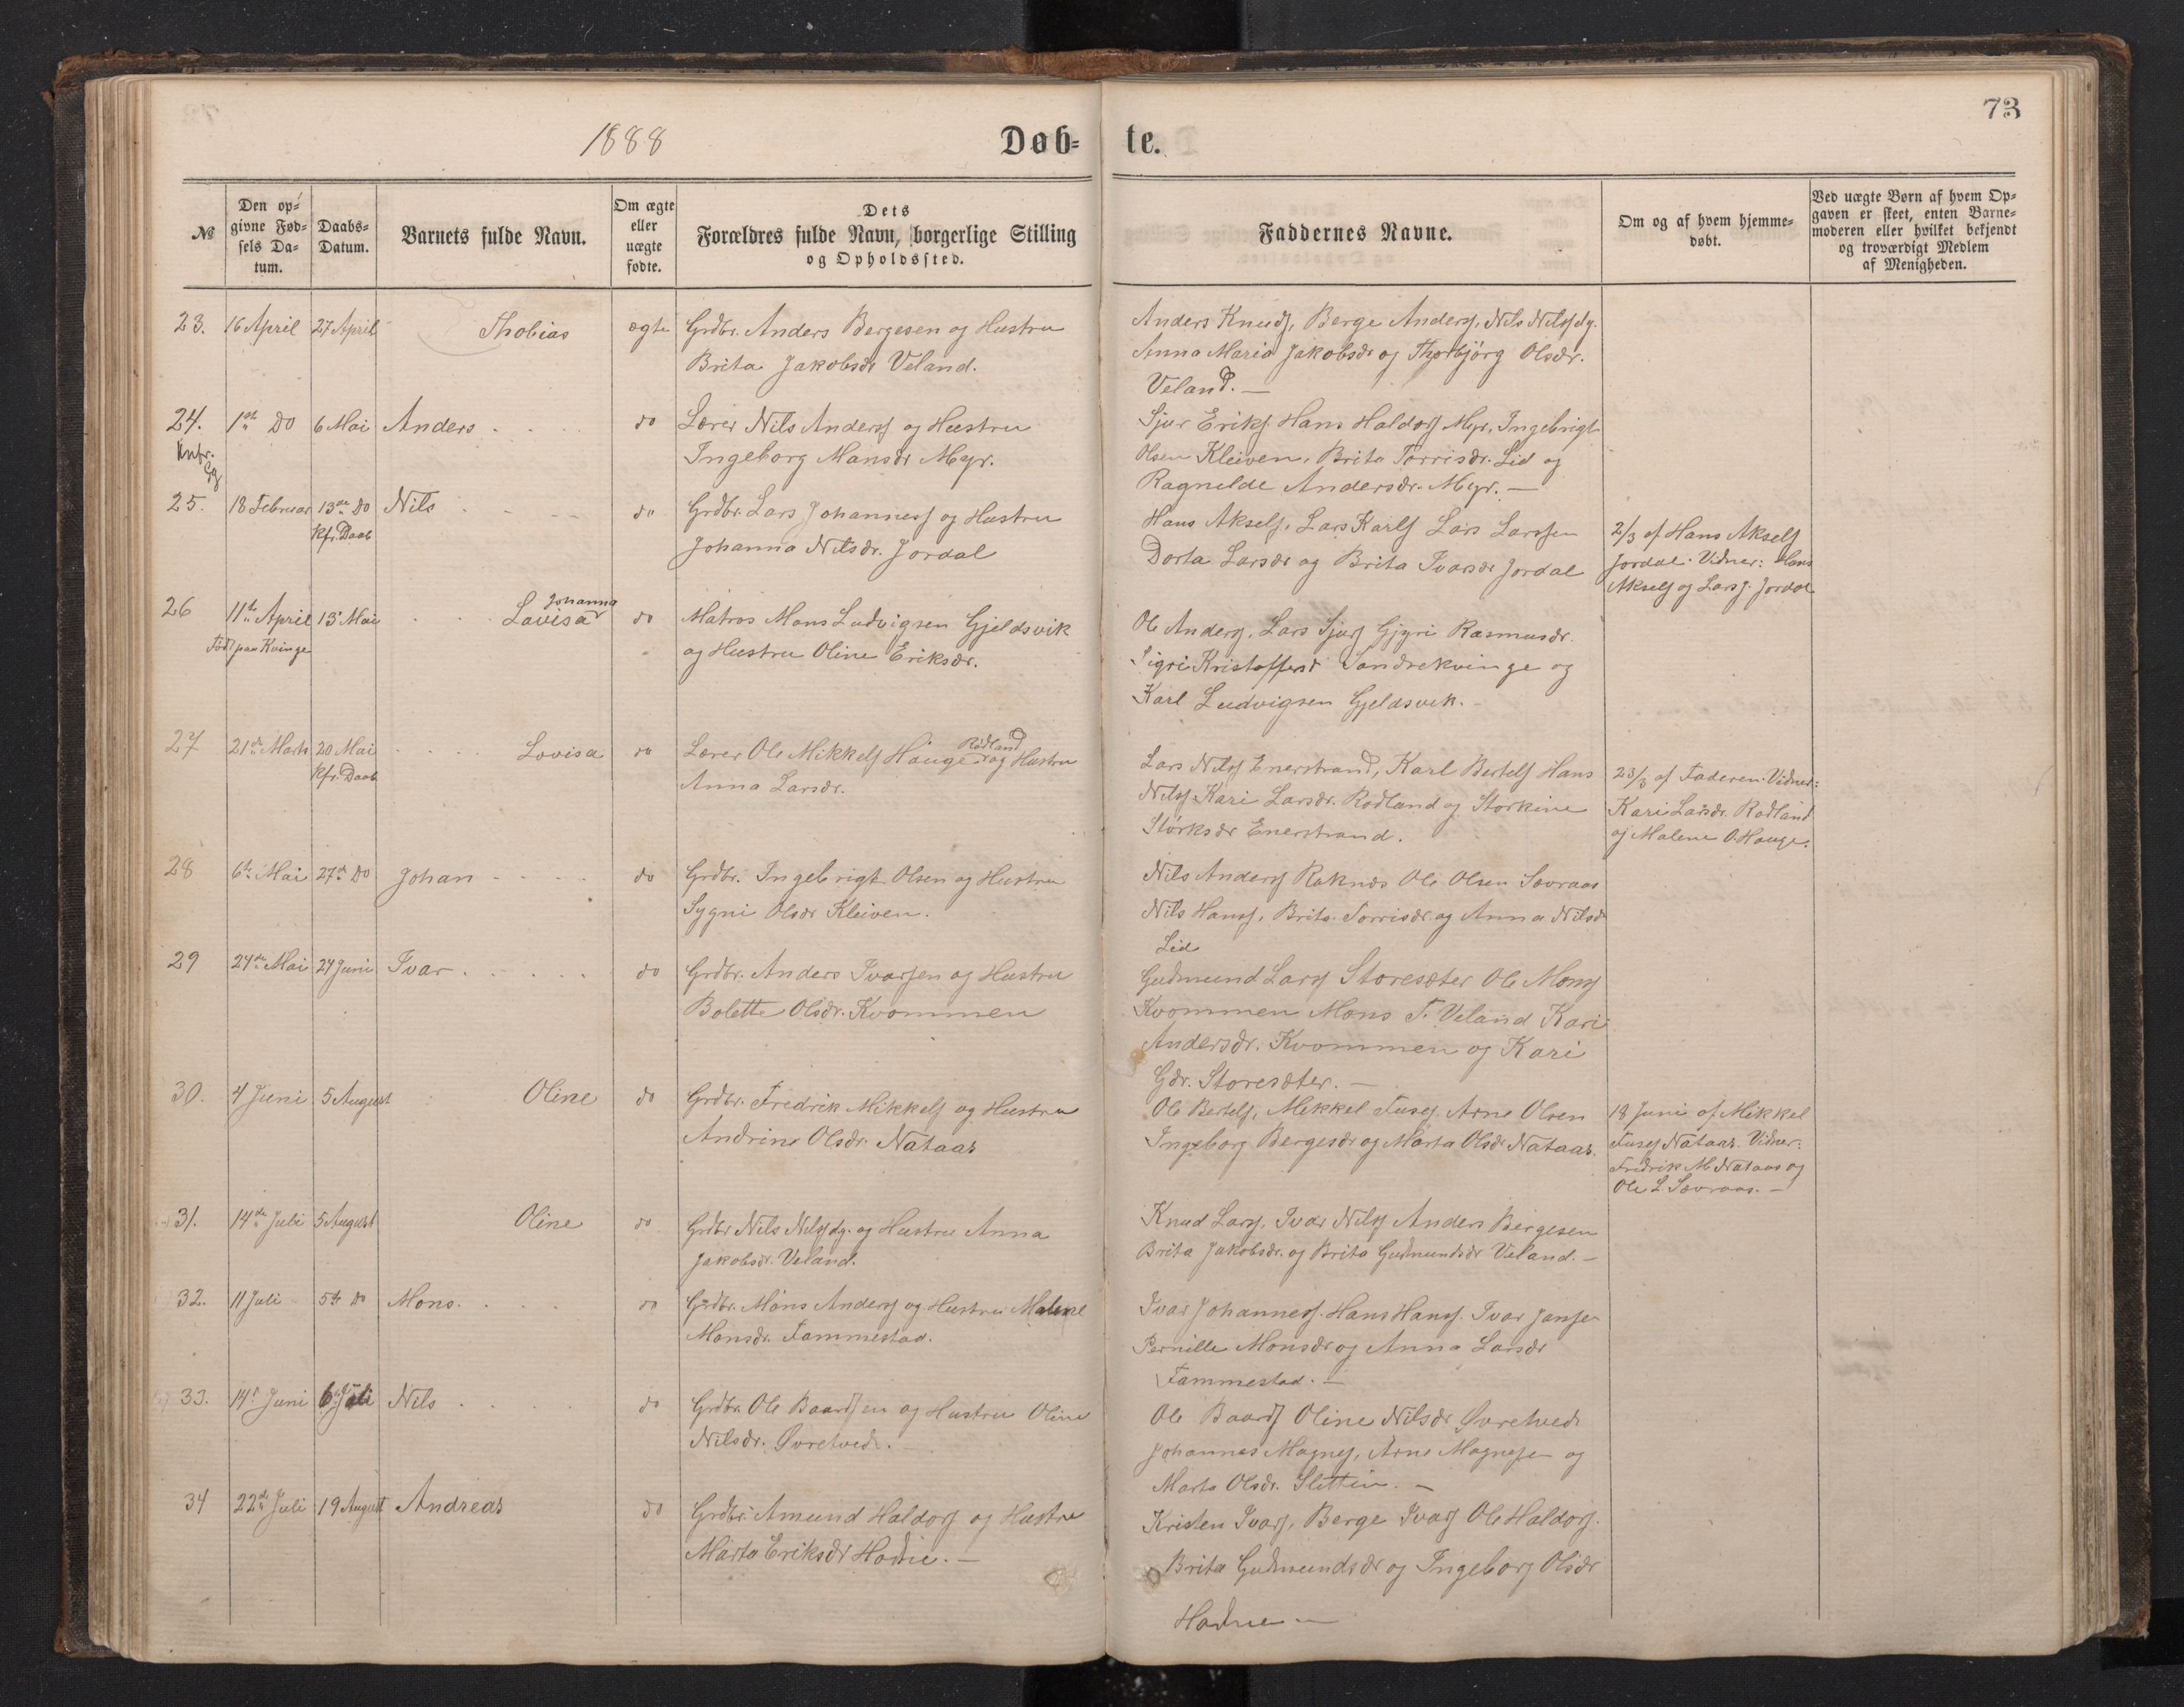 73
1888
Døb-
te.
№
Den op-
givne Fød-
sels Da-
tum.
Daabs-
Datum.
Barnets fulde Navn.
Om ægte
eller
uægte
fødte.
Dets
Forældres fulde Navn, borgerlige Stilling
og Opholdssted.
Faddernes Navne.
Om og af hvem hjemme-
døbt.
Ved uægte Børn af hvem Op-
gaven er skeet, enten Barne-
moderen eller hvilket bekjendt
og troværdigt Medlem
af Menigheden.
23. 16 April 27 April Thobias ægte Grdbr. Anders Bergesen og Hustru
Brita Jakobsdr Veland.
Anders Knuds, Berge Anders, Nils Nilss dy.
Anna Maria Jakobsdr og Thorbjörg Olsdr.
Veland. —
24. 1ste do 6 Mai Anders do Lærer Nils Anderss og Hustru
Ingeborg Mansdr Myr.
Sjur Eriks Hans Haldors Myr, Ingebrigt
Olsen Kleiven, Brita Torrisdr. Lid og
Ragnilde Andersdr. Myr. —
25. 18 Februar 13de do Nils do Grdbr. Lars Johanness og Hustru
Kfr. Daab
Johanna Nilsdr. Jordal
Hans Aksels, Lars Karls Lars Larssen
Dorta Larsdr og Brita Ivarsdr Jordal
2/3 af Hans Aksels
Jordal. Vidner: Hans
Aksels og Lars J. Jordal
26 11te April 13 Mai Johanna
Lovisa do Matros Mons Ludvigsen Gjeldsvik
Født paa Kvinge
og Hustru Oline Eriksdr.
Ole Anders, Lars Sjurs Gjyri Rasmusdr.
Sigri Kristoffersd Søndrekvinge og
Karl Ludvigsen Gjeldsvik. -
27 21de Marts 20 Mai Lovisa do Lærer Ole Mikkels Hauge Rødland og Hustru
Kfr. Daab
Anna Larsdr.
Lars Nilss Enerstrand, Karl Bertels Hans
Nilss, Kari Larsdr. Rødland og Storkine
Størksdr Enerstrand.
23/3 af Faderen. Vidner:
Kari Larsdr. Rødland
og Malene O. Hauge.
28 6te Mai 27de do Johan do Grdbr. Ingebrigt Olsen og Hustru
Sygni Olsdr Kleiven.
Nils Anders Raknes Ole Olsen Sævraas
Nils Hanss, Brita Torrisdr. og Anna Nilsdr
Lid
29 24de Mai 24 Juni Ivar do Grdbr. Anders Ivarsen og Hustru
Bolette Olsdr. Kvommen
Gudmund Lars Storesæter Ole Mons
Kvommen Mons T. Veland Kari
Andersdr. Kvommen og Kari
Gdr. Storesæter. —
30. 4 Juni 5 August Oline do Grdbr. Fredrik Mikkels og Hustru
Andrine Olsdr. Nataas
Ole Bertels, Mikkel Fuses Arne Olsen
Ingeborg Bergesdr og Marta Olsdr Nataas.
18 Juni af Mikkel
Fuses Nataas. Vidner:
Fredrik M. Nataas og
Ole L. Sævraas. —
31. 14de Juli 5 August Oline do Grdbr Nils Nilss dy. og Hustru Anna
Jakobsdr. Veland.
Knud Lars, Ivar Nilss Anders Bergesen
Brita Jakobsdr. og Brita Gudmundsdr Veland. —
32. 11 Juli 5te do Mons. do Grdbr. Mons Anders og Hustru Malene
Monsdr. Fammestad.
Ivar Johanness. Hans Hanss. Ivar Janse
Pernille Monsdr og Anna Larsdr
Fammestad. —
33. 14 Juni 6 Juli Nils do Grdbr. Ole Baardsen og Hustru Oline
Nilsdr. Øvretvedt.
Ole Baards Oline Nilsdr Øvretvedt
Johannes Magnes, Arne Magnesen og
Marta Olsdr. Sletten. —
34 22de Juli 19 August Andreas do Grdbr. Amund Haldors og Hustru
Marta Eriksdr Hodne. —
Kristen Ivars, Berge Ivars Ole Haldors.
Brita Gudmundsdr og Ingeborg Olsdr
Hodne —